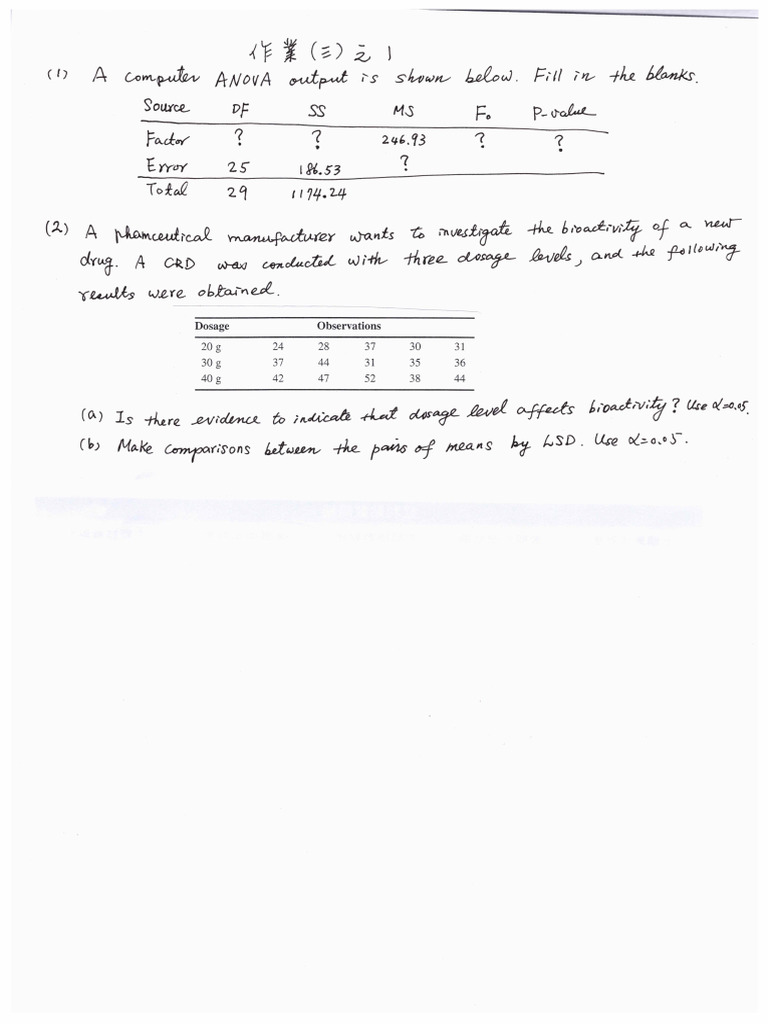 作業(三)之1
(1) A computer ANOVA output is shown below. Fill in the blanks.
Source DF SS MS F₀ P-value
Factor ? ? 246.93 ? ?
Error 25 186.53 ?
Total 29 1174.24
(2) A phamceutical manufacturer wants to investigate the bioactivity of a new
drug. A CRD was conducted with three dosage levels, and the following
results were obtained.
Dosage Observations
20 g 24 28 37 30 31
30 g 37 44 31 35 36
40 g 42 47 52 38 44
(a) Is there evidence to indicate that dosage level affects bioactivity? Use α=0.05.
(b) Make comparisons between the pairs of means by LSD. Use α=0.05.